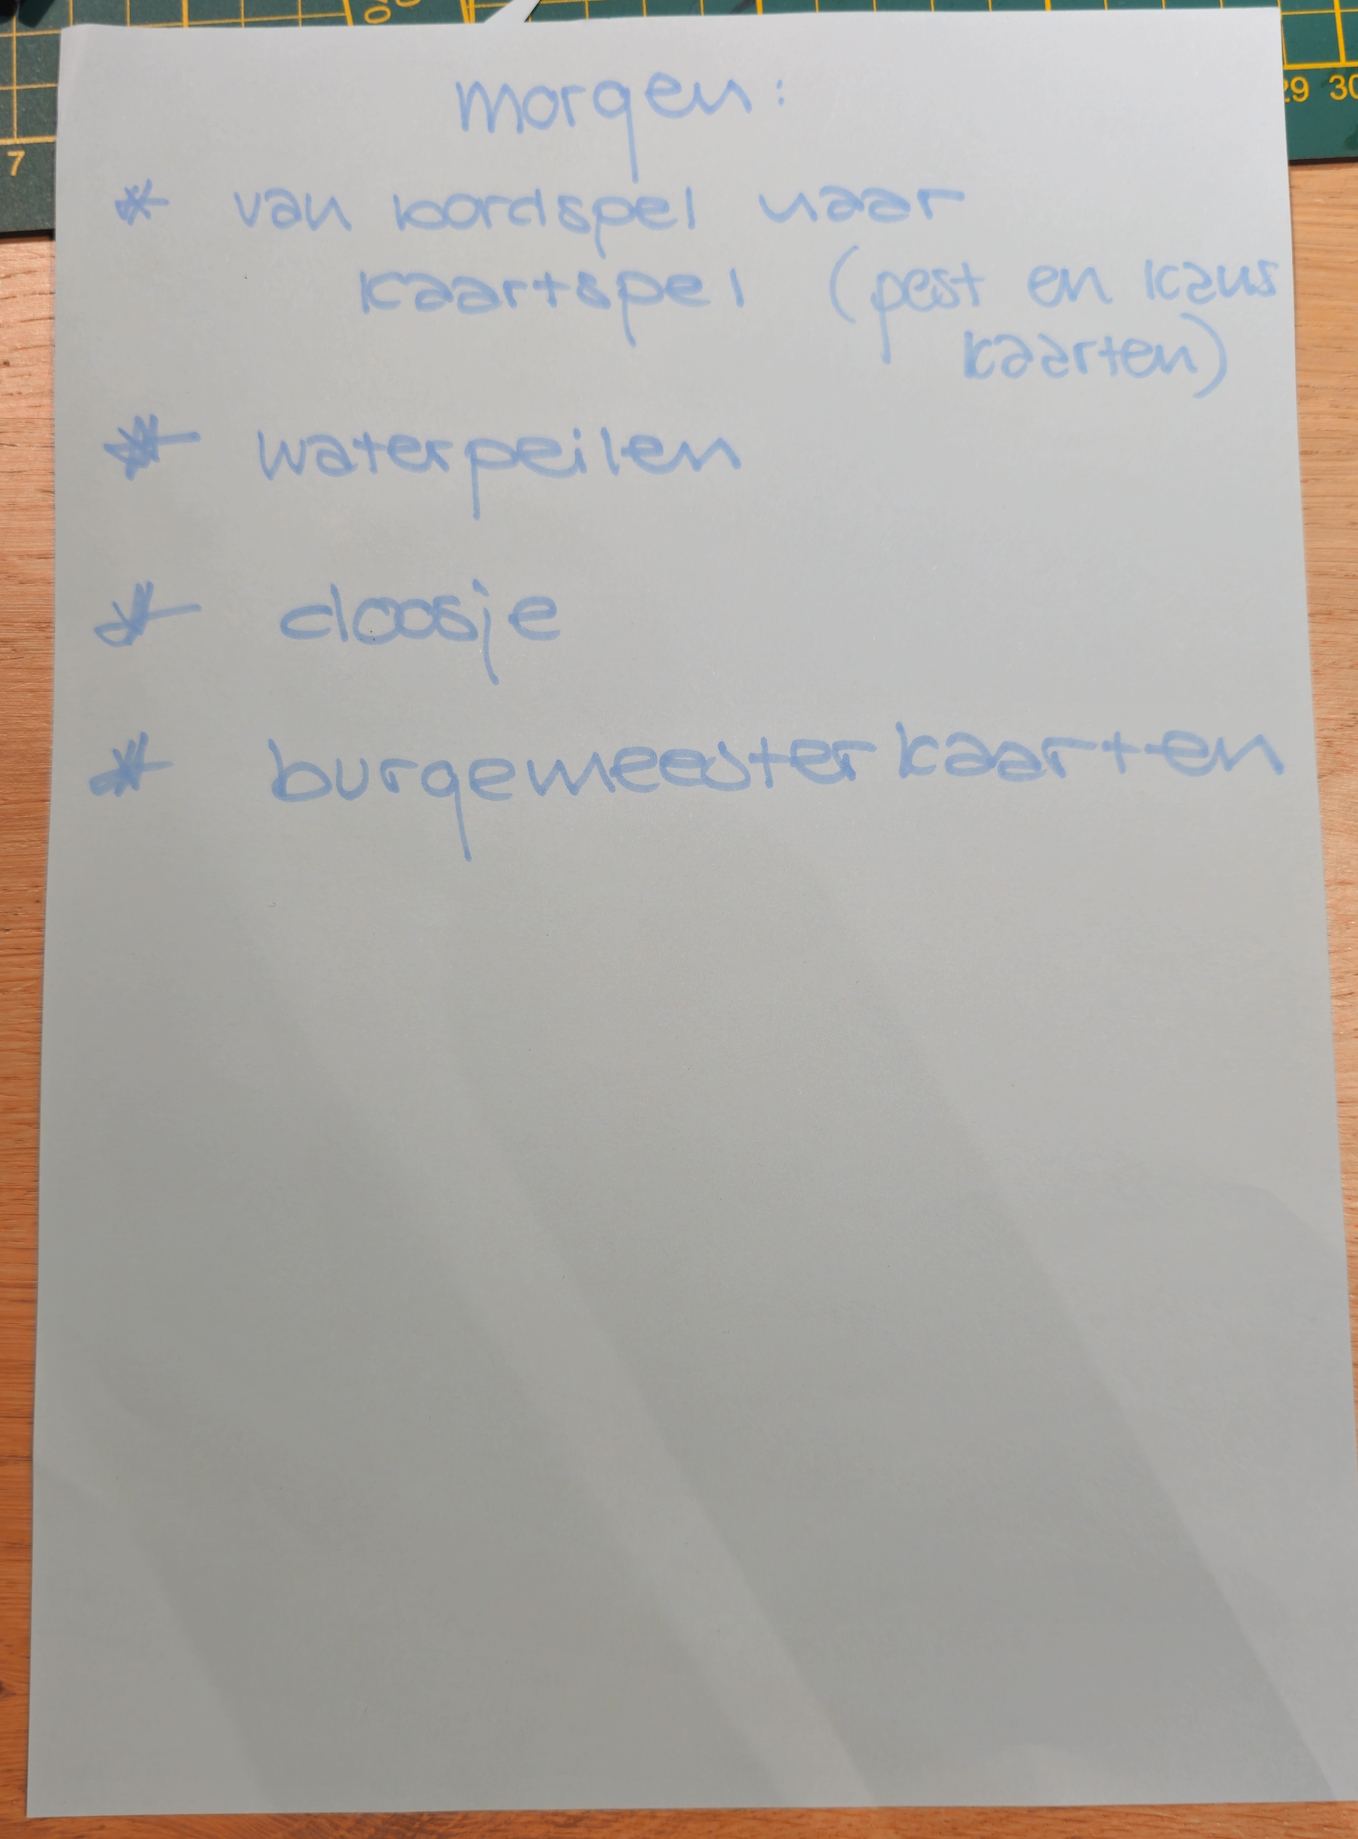 morgen:
* van bordspel naar
kaartspel (pest en kans
kaarten)
* waterpeilen
* doosje
* burgemeester kaarten
7
29 30